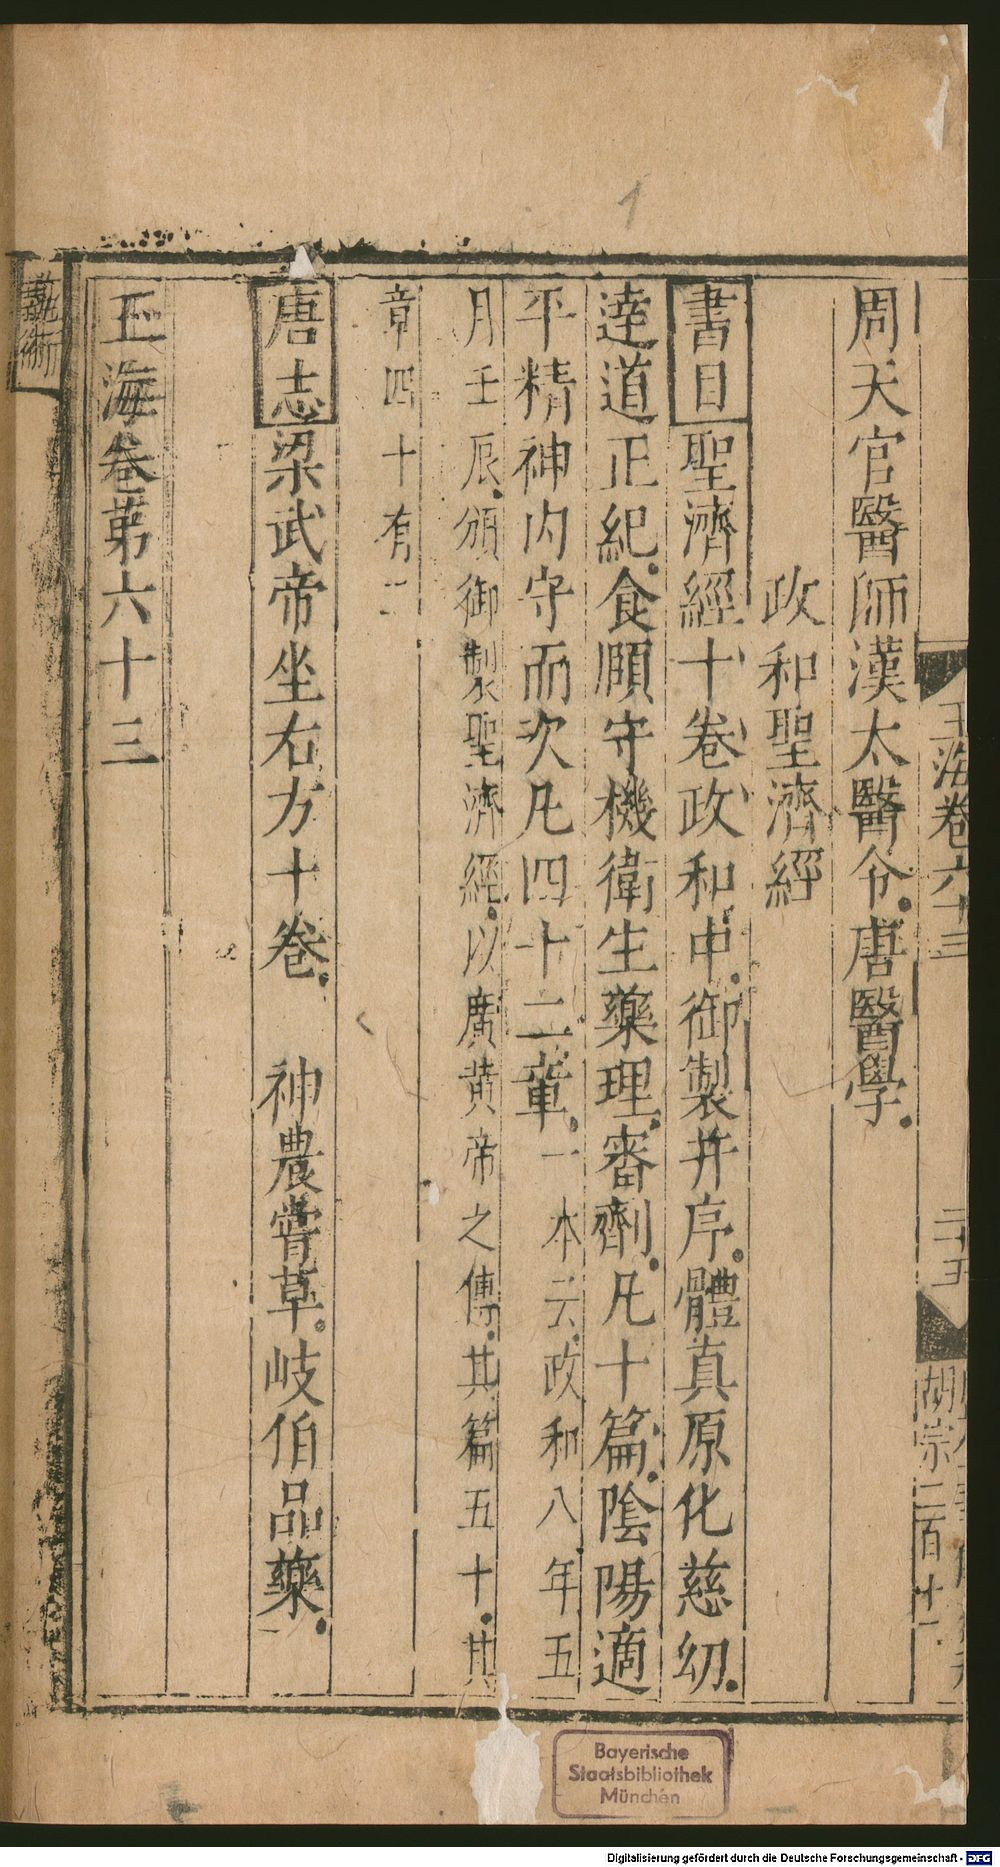 玉海卷六十三
二十五
胡宗二百十一
周天官醫師漢太醫令唐醫學
政和聖濟經
書目聖濟經十卷政和中御製并序體真原化慈幼
達道正紀食頤守機衛生藥理審劑凡十篇陰陽適
平精神内守而次凡四十二章一本云政和八年五
月壬辰頒御製聖濟經以廣黄帝之傳其篇五十其
章四十有二
唐志梁武帝坐右方十卷 神農嘗草岐伯品藥
玉海卷第六十三
藝術
1
Bayerische
Staatsbibliothek
München
Digitalisierung gefördert durch die Deutsche Forschungsgemeinschaft - DFG